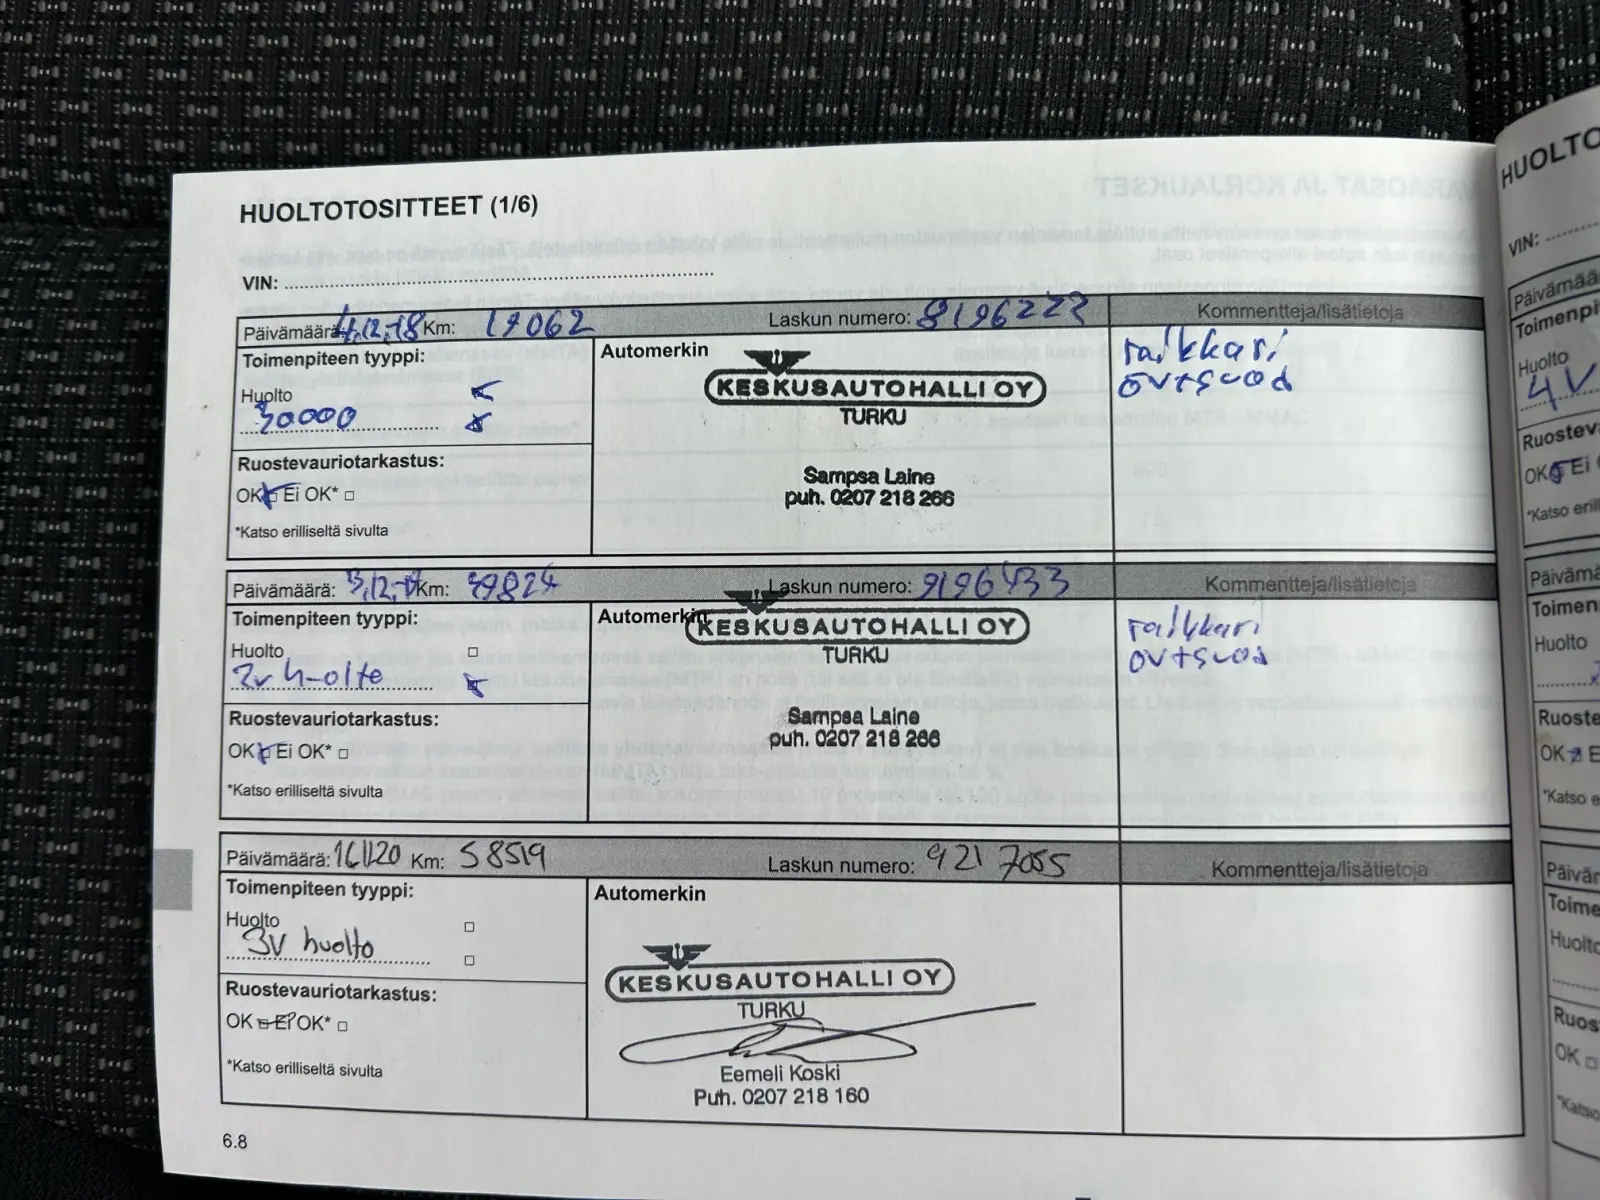 HUOLTOTOSITTEET (1/6)
VIN:
Päivämäärä: 4.12.-18 Km: 17062 Laskun numero: 8196222 Kommentteja/lisätietoja
Toimenpiteen tyyppi:
Automerkin
KESKUSAUTOHALLI OY
TURKU
Huolto
30000
Ruostevauriotarkastus:
OK Ei OK*
*Katso erilliseltä sivulta
Sampsa Laine
puh. 0207 218 266
Päivämäärä: 3.12.-19 Km: 39824 Laskun numero: 9196433 Kommentteja/lisätietoja
Toimenpiteen tyyppi:
Automerkin
KESKUSAUTOHALLI OY
TURKU
Huolto
2v h-olto
Ruostevauriotarkastus:
OK Ei OK*
*Katso erilliseltä sivulta
Sampsa Laine
puh. 0207 218 266
Päivämäärä: Km: 58519 Laskun numero: 9217055 Kommentteja/lisätietoja
Toimenpiteen tyyppi:
Automerkin
Huolto
3v huolto
KESKUSAUTOHALLI OY
TURKU
Ruostevauriotarkastus:
OK Ei OK*
*Katso erilliseltä sivulta
Eemeli Koski
Puh. 0207 218 160
6.8
HUOLTO
VIN:
Päivämää
Toimenpi
Huolto
4V
Ruostev
OK Ei
*Katso eril
Päivämä
Toimen
Huolto
Ruoste
OK E
*Katso e
Päivän
Toime
Huolto
Ruos
OK
*Katso